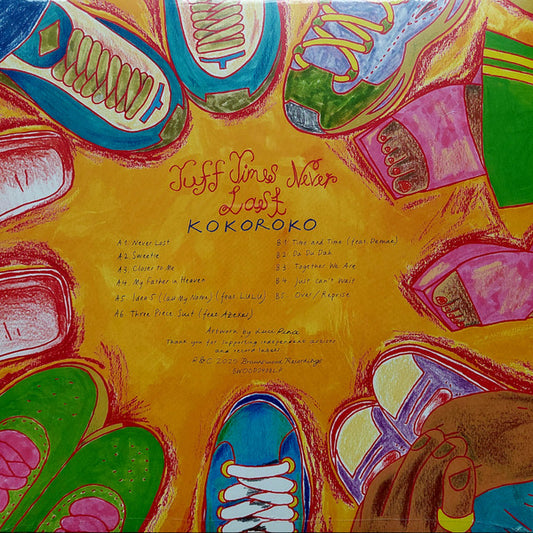 Tuff Times Never
Last
KOKOROKO
A1 Never Lost
A2 Sweetie
A3 Closer to Me
A4 My Father in Heaven
A5 Idea 5 (Call My Name) (feat. LULU)
A6 Three Piece Suit (feat. Azekel)
B1 Time and Time (feat. Demae)
B2 Da Du Dah
B3 Together We Are
B4 Just Can't Wait
B5 Over / Reprise
Artwork by Luci Pina
Thank you for supporting independent artists
and record labels
P & C 2025 Brownswood Recordings